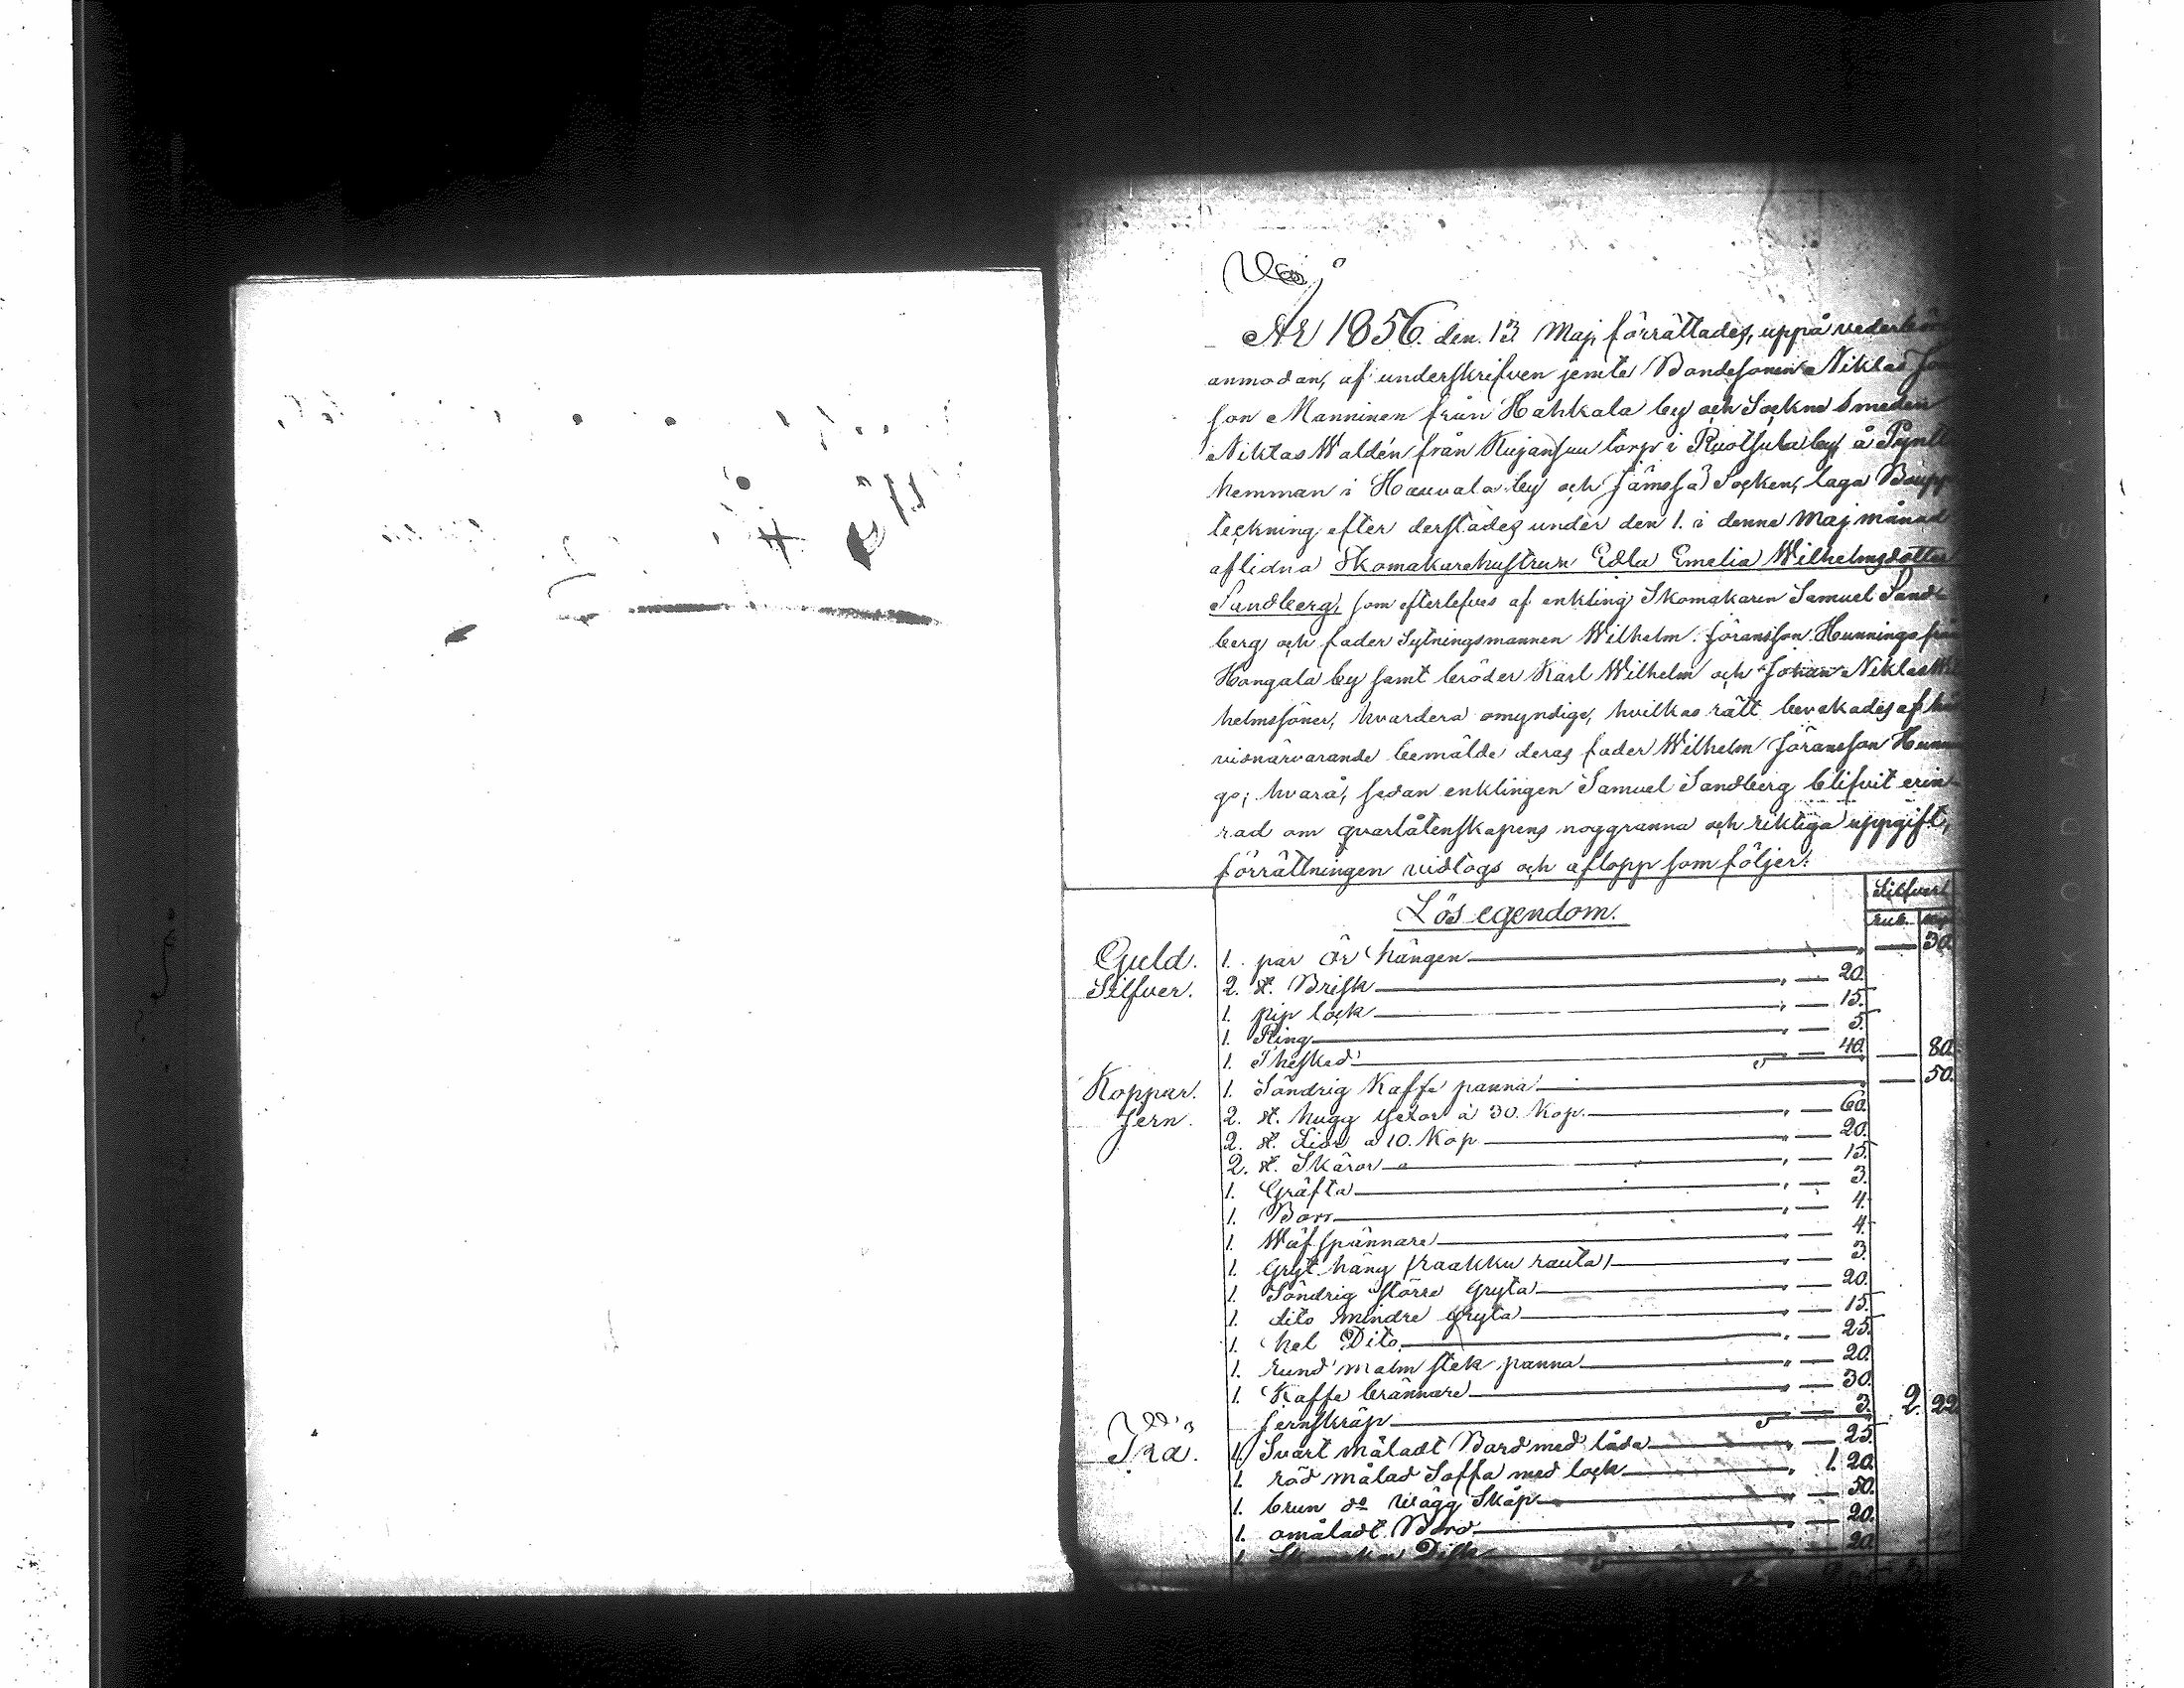 År 1856. den. 13 Maj, förrättades, uppå
anmodan, af underskrifven jemte Bondesonen Niklas
son Manninen från Hahkala by och Sockne Smeden
Niklas Waldén från Kujansuu torp i Ruotsula by, å
hemman i Hauvala by och Jämssä Socken, laga
teckning efter derstädes under den 1. i denne Maj månad
aflidna Skomakarehustrun Edla Emelia Wilhelmsdotter
Sandberg, som efterlefves af enkling Skomakaren Samuel Sand-
berg och fader Sytningsmannen Wilhelm Jöransson Hunninga från
Hongala by samt bröder Karl Wilhelm och Johan Niklas
helmssöner, hvardera omyndige, hvilkas rätt bevakades af
visnärvarande bemälde deras fader Wilhelm Jöransson
ga; hvarå, sedan enklingen Samuel Sandberg blifvit erin-
rad om qvarlåtenskapens noggranna och riktiga uppgift,
förrättningen vidtogs och aflopp som följer:
Silfver
Lös egendom.
rub. kop
Guld. 1. par Ör hängen — 30.
Silfver. 2. st. Brisk — 20.
1. pip lock — 15.
1. Ring — 5.
1. Thesked — 40. — 80.
Koppar. 1. Söndrig Kaffe panna — 50.
Jern. 2. st. hugg yxor à 30. Kop. — 60.
2. st. Liar a 10. Kop — 20.
2. st. Skäror — 15.
1. Gräfta — 3.
1. Borr — 4.
1. Wäf spännare — 4.
1. Gryt häng (raakku rauta) — 3.
1. Söndrig större Gryta — 20.
1. dito mindre Gryta — 15.
1. hel Dito — 25.
1. rund malm stek panna — 20.
1. Kaffe brännare — 30.
Jernskräp — 3. 2. 22.
Trä. 1. Svart måladt Bord med låda — 25.
1. röd målad Soffa med lock — 1. 20.
1. brun do Wägg Skåp — 50.
1. omåladt Bord — 20.
1. Skomakar Disk — 20.
KODAK SAFETY